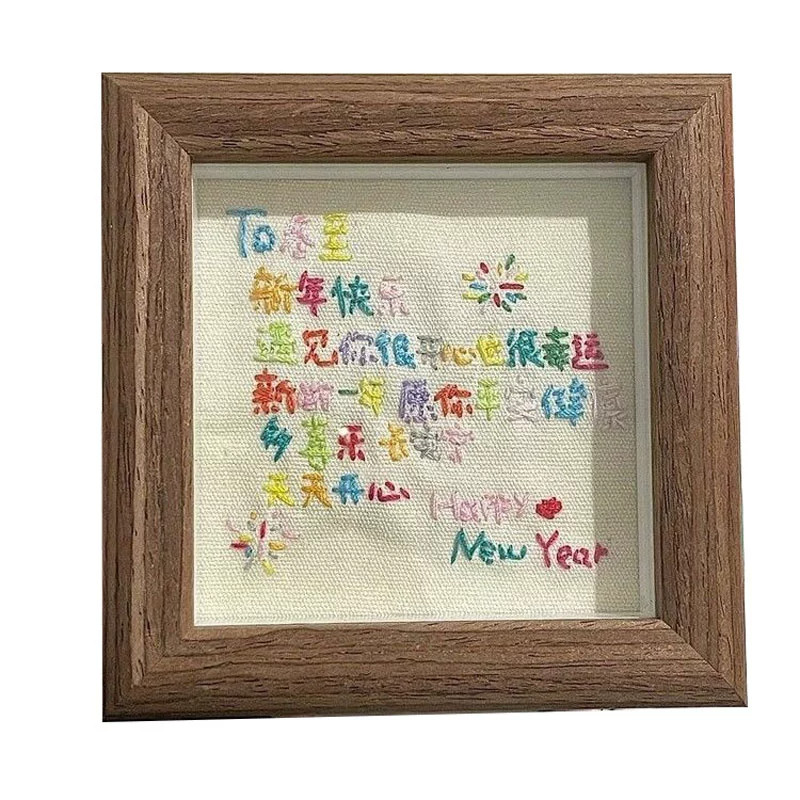 To 冬至
新年快乐
遇见你很开心也很幸运
新的一年 愿你平安健康
多喜乐 长安宁
天天开心
Happy
New Year